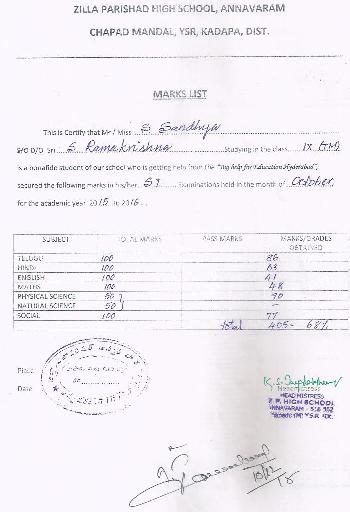 ZILLA PARISHAD HIGH SCHOOL, ANNAVARAM
CHAPAD MANDAL, YSR, KADAPA, DIST.
MARKS LIST
This is Certify that Mr / Miss S Sandhya
S/O D/O Sri S Ramakrishna Studying in the class IX
is a bonafide student of our school who is getting help from the "Big help for Education Hyderabad",
secured the following marks in his/her. Examinations held in the month of October
for the academic year 2015 to 2016
SUBJECT TOTAL MARKS PASS MARKS MARKS/GRADES OBTAINED
TELUGU 100 86
HINDI 100 63
ENGLISH 100 41
MATHS 100 48
PHYSICAL SCIENCE 50 90
NATURAL SCIENCE 50 -
SOCIAL 100 77
total 405- 68%
Place
Date
HEADMISTRESS
Z.P. HIGH SCHOOL
ANNAVARAM - 516 362